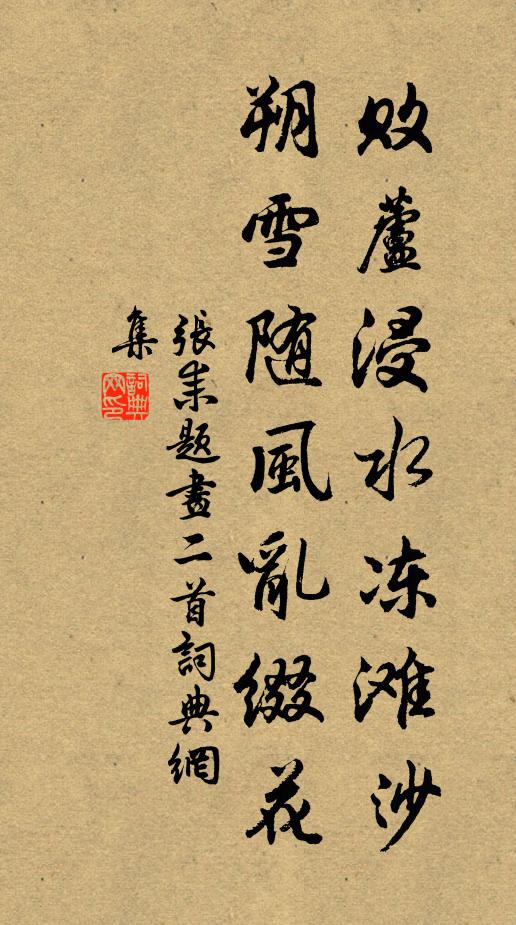 败蘆浸水冻滩沙
朔雪随風亂綴花
張耒題畫二首詞典網
集
詞典
网印